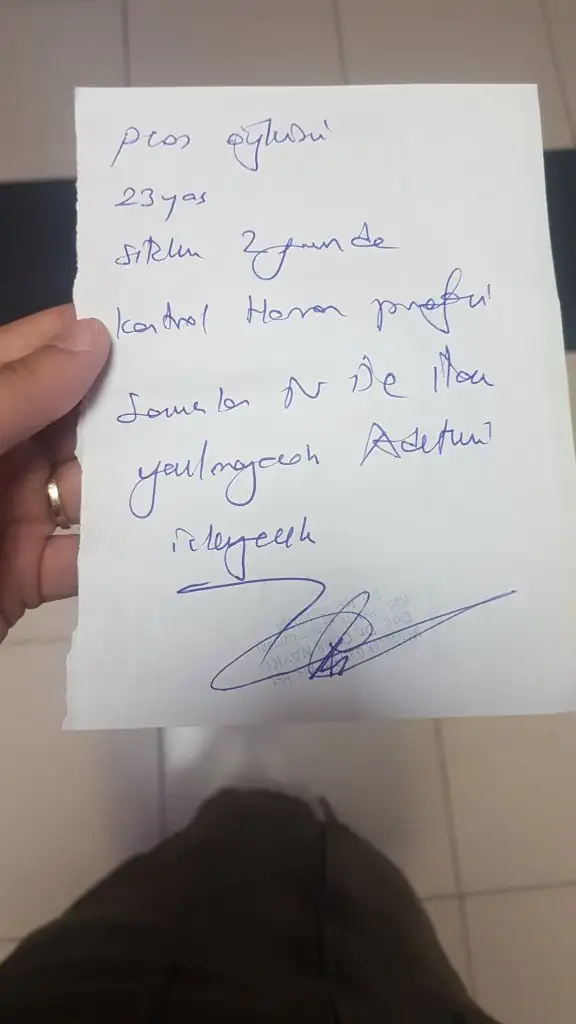 PCOS öyküsü
23 yas
siklun 2 gününde
kontrol Hormon profili
Sonuclar N ise ilac
yazılmayacak Adetini
izleyecek